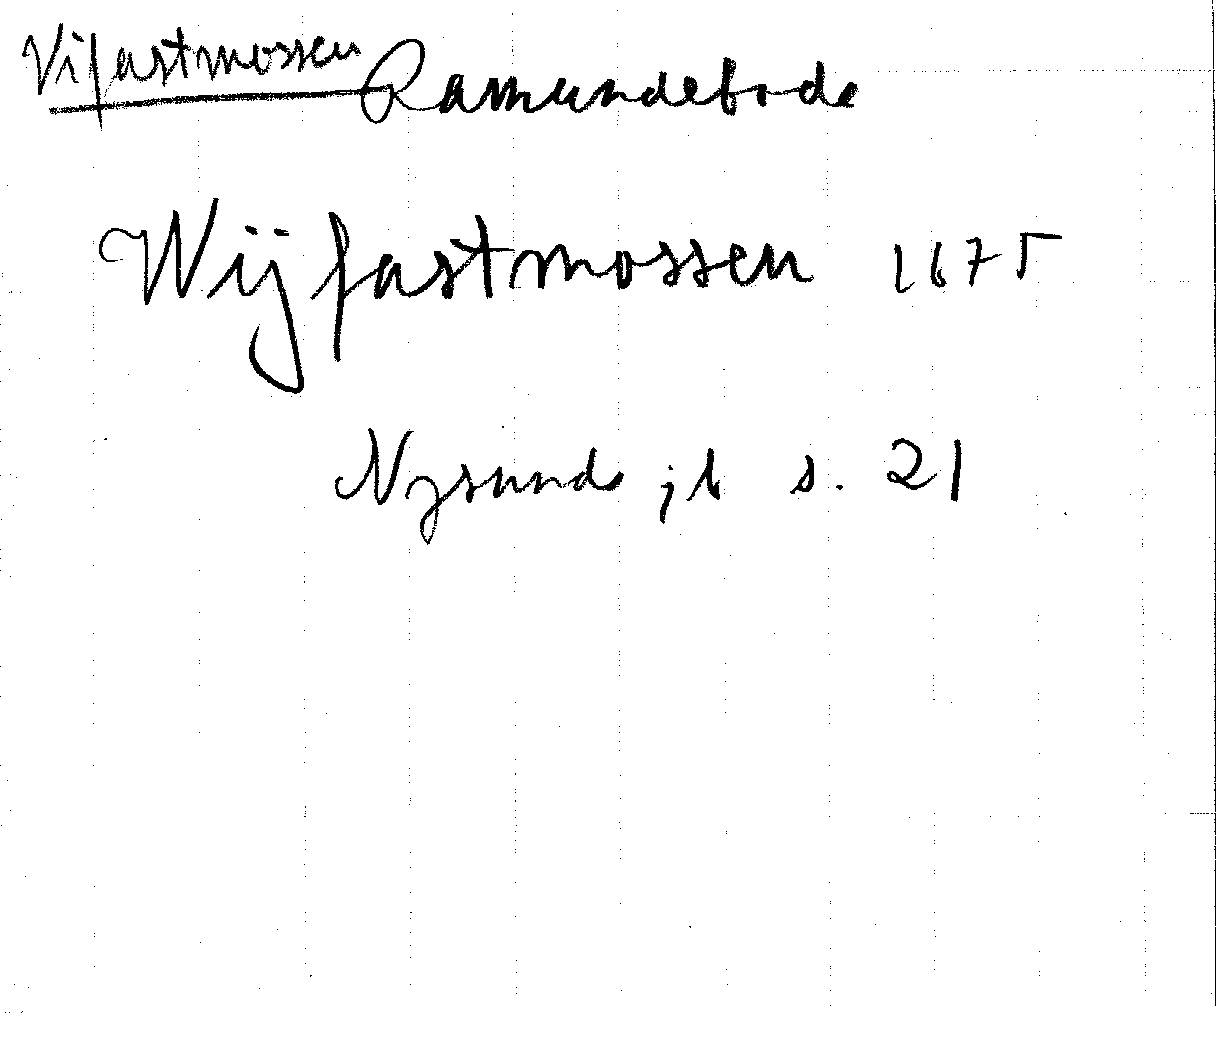 Vifastmossen Ramundeboda
Wijfastmossen 1675
Nysund jb s. 21